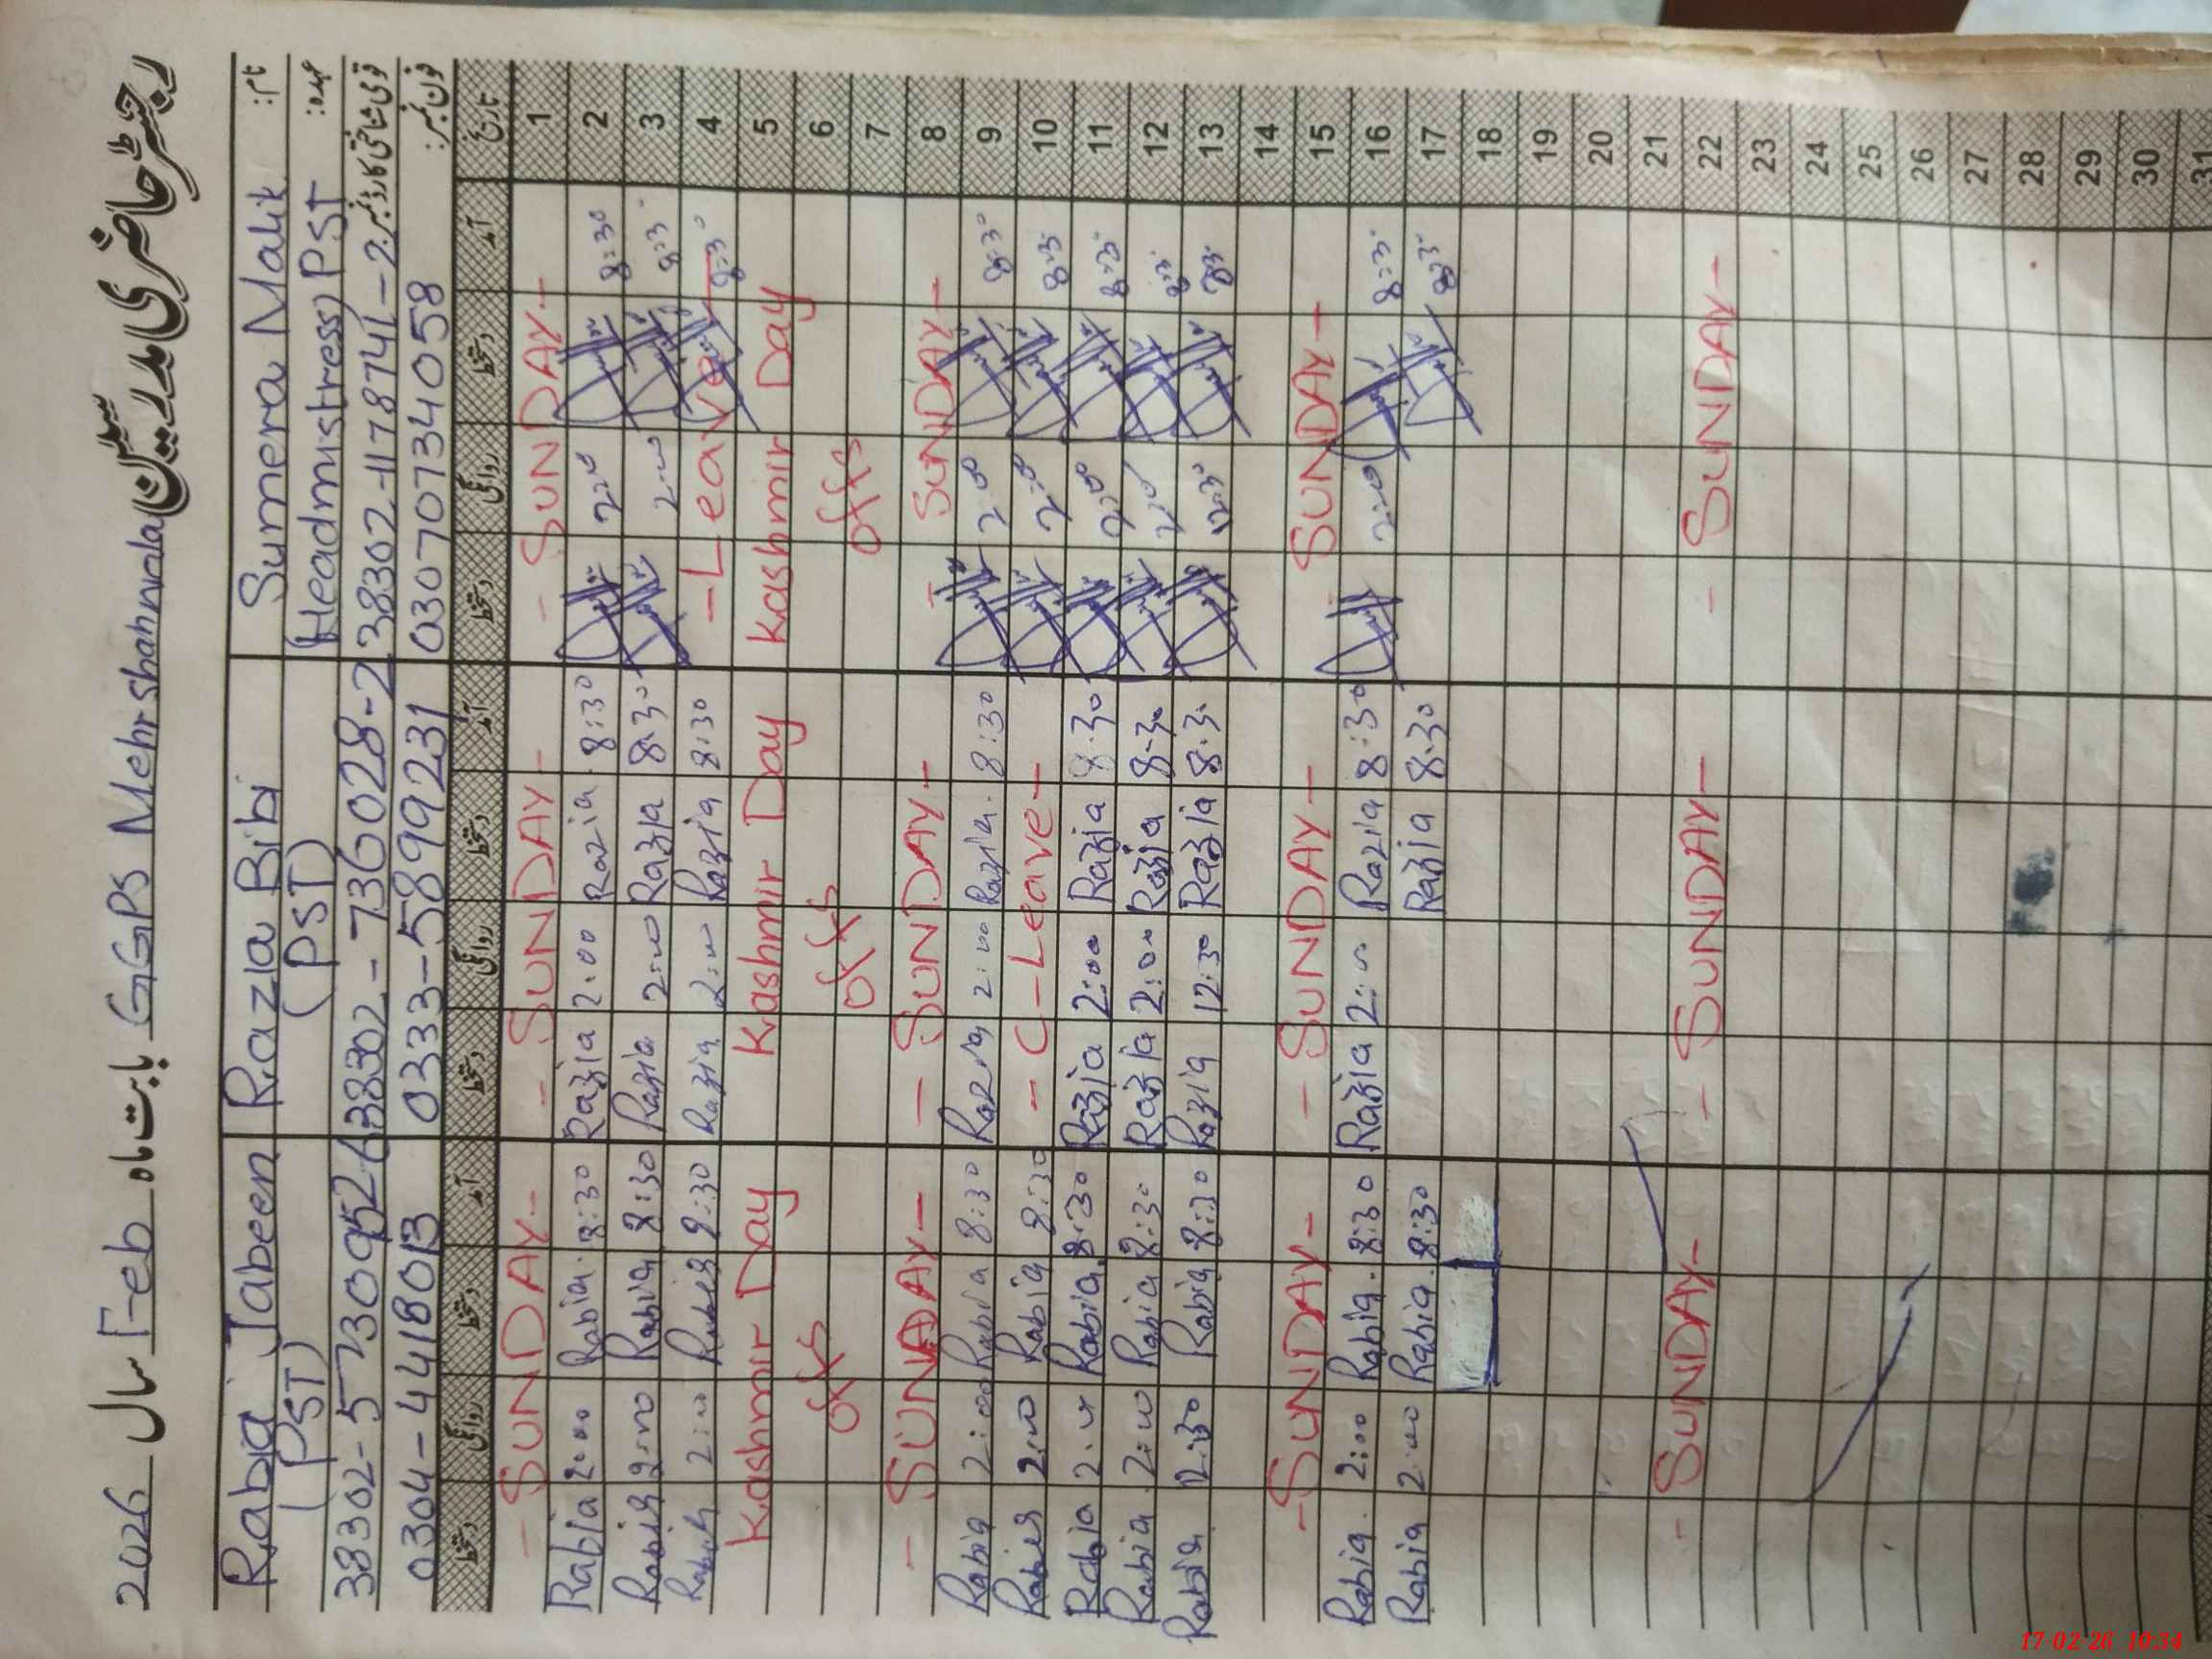 رجسٹر حاضری مدرسین GGPS Mehrshahnwala بابت ماہ Feb سال 2026
نام: Sumera Malik Razia Bibi Rabia Jabeen
عہدہ: (Headmistress) PST (PST) (PST)
قومی شناختی کارڈ نمبر: 38302-1178741-2 38302-736028-2 38302-5730952-6
فون نمبر: 03070734058 0333-5899231 0304-4418013
تاریخ آمد دستخط روانگی دستخط آمد دستخط روانگی دستخط آمد دستخط روانگی دستخط
1 - SUNDAY - - SUNDAY - - SUNDAY -
2 8:30 2:00 8:30 Razia 2:00 Razia 8:30 Rabia 2:00 Rabia
3 8:30 2:00 8:30 Razia 2:00 Razia 8:30 Rabia 2:00 Rabia
4 8:30 - Leave - 8:30 Razia 2:00 Razia 8:30 Rabia 2:00 Rabia
5 Kashmir Day Kashmir Day Kashmir Day
6 offs offs offs
7
8 - SUNDAY - - SUNDAY - - SUNDAY -
9 8:30 2:00 8:30 Razia 2:00 Razia 8:30 Rabia 2:00 Rabia
10 8:30 2:00 - C-Leave - 8:30 Rabia 2:00 Rabia
11 8:30 2:00 8:30 Razia 2:00 Razia 8:30 Rabia 2:00 Rabia
12 8:30 2:00 8:30 Razia 2:00 Razia 8:30 Rabia 2:00 Rabia
13 8:30 12:30 8:30 Razia 12:30 Razia 8:30 Rabia 12:30 Rabia
14
15 - SUNDAY - - SUNDAY - - SUNDAY -
16 8:30 2:00 8:30 Razia 2:00 Razia 8:30 Rabia 2:00 Rabia
17 8:30 8:30 Razia 8:30 Rabia 2:00 Rabia
18
19
20
21
22 - SUNDAY - - SUNDAY - - SUNDAY -
23
24
25
26
27
28
29
30
31
17-02-26 10:34